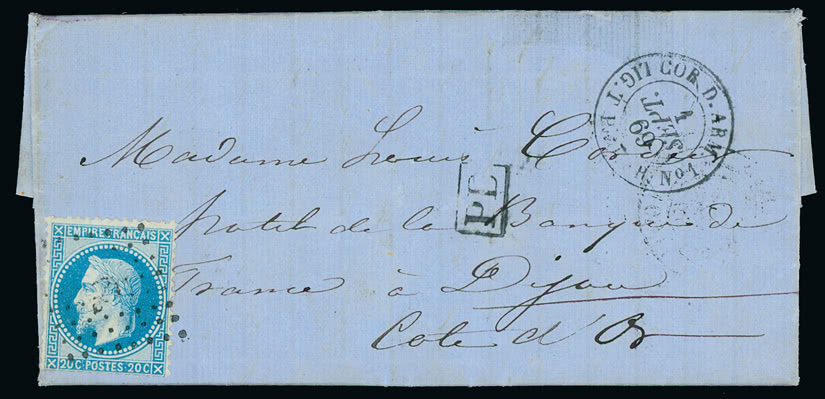 COR. D. ARM. LIG. T PAQ. H. No 1
1
SEPT.
69
Madame Louis Cordier
hotel de la Banque de
PD
France à Dijon
Cote d'Or
EMPIRE FRANCAIS
20C POSTES 20C